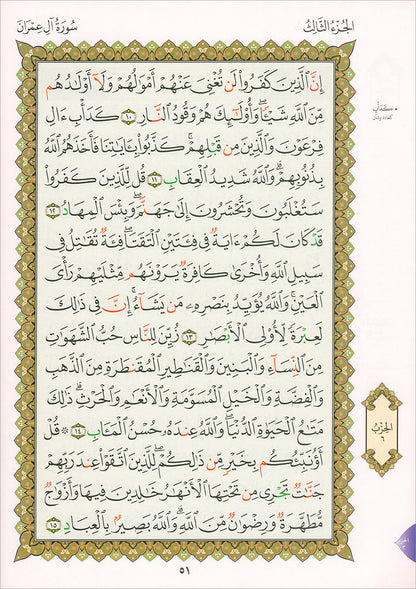 سُورَةُ آلِ عِمْرَانَ
الجُزءُ الثَّالِثُ
إِنَّ الَّذِينَ كَفَرُوا لَن تُغْنِيَ عَنْهُمْ أَمْوَالُهُمْ وَلَا أَوْلَادُهُم
مِّنَ اللَّهِ شَيْئًا ۖ وَأُولَٰئِكَ هُمْ وَقُودُ النَّارِ ١٠ كَدَأْبِ آلِ
فِرْعَوْنَ وَالَّذِينَ مِن قَبْلِهِمْ ۚ كَذَّبُوا بِآيَاتِنَا فَأَخَذَهُمُ اللَّهُ
بِذُنُوبِهِمْ ۗ وَاللَّهُ شَدِيدُ الْعِقَابِ ١١ قُل لِّلَّذِينَ كَفَرُوا
سَتُغْلَبُونَ وَتُحْشَرُونَ إِلَىٰ جَهَنَّمَ ۚ وَبِئْسَ الْمِهَادُ ١٢
قَدْ كَانَ لَكُمْ آيَةٌ فِي فِئَتَيْنِ الْتَقَتَا ۖ فِئَةٌ تُقَاتِلُ فِي
سَبِيلِ اللَّهِ وَأُخْرَىٰ كَافِرَةٌ يَرَوْنَهُم مِّثْلَيْهِمْ رَأْيَ
الْعَيْنِ ۚ وَاللَّهُ يُؤَيِّدُ بِنَصْرِهِ مَن يَشَاءُ ۗ إِنَّ فِي ذَٰلِكَ
لَعِبْرَةً لِّأُولِي الْأَبْصَارِ ١٣ زُيِّنَ لِلنَّاسِ حُبُّ الشَّهَوَاتِ
مِنَ النِّسَاءِ وَالْبَنِينَ وَالْقَنَاطِيرِ الْمُقَنطَرَةِ مِنَ الذَّهَبِ
وَالْفِضَّةِ وَالْخَيْلِ الْمُسَوَّمَةِ وَالْأَنْعَامِ وَالْحَرْثِ ۗ ذَٰلِكَ
مَتَاعُ الْحَيَوٰةِ الدُّنْيَا ۖ وَاللَّهُ عِندَهُ حُسْنُ الْمَآبِ ١٤ ۞ قُلْ
أَؤُنَبِّئُكُم بِخَيْرٍ مِّن ذَٰلِكُمْ ۚ لِلَّذِينَ اتَّقَوْا عِندَ رَبِّهِمْ
جَنَّاتٌ تَجْرِي مِن تَحْتِهَا الْأَنْهَارُ خَالِدِينَ فِيهَا وَأَزْوَاجٌ
مُّطَهَّرَةٌ وَرِضْوَانٌ مِّنَ اللَّهِ ۗ وَاللَّهُ بَصِيرٌ بِالْعِبَادِ ١٥
• كَدَأْبِ
كعادة وشأن
الحِزْبُ
٦
٥١